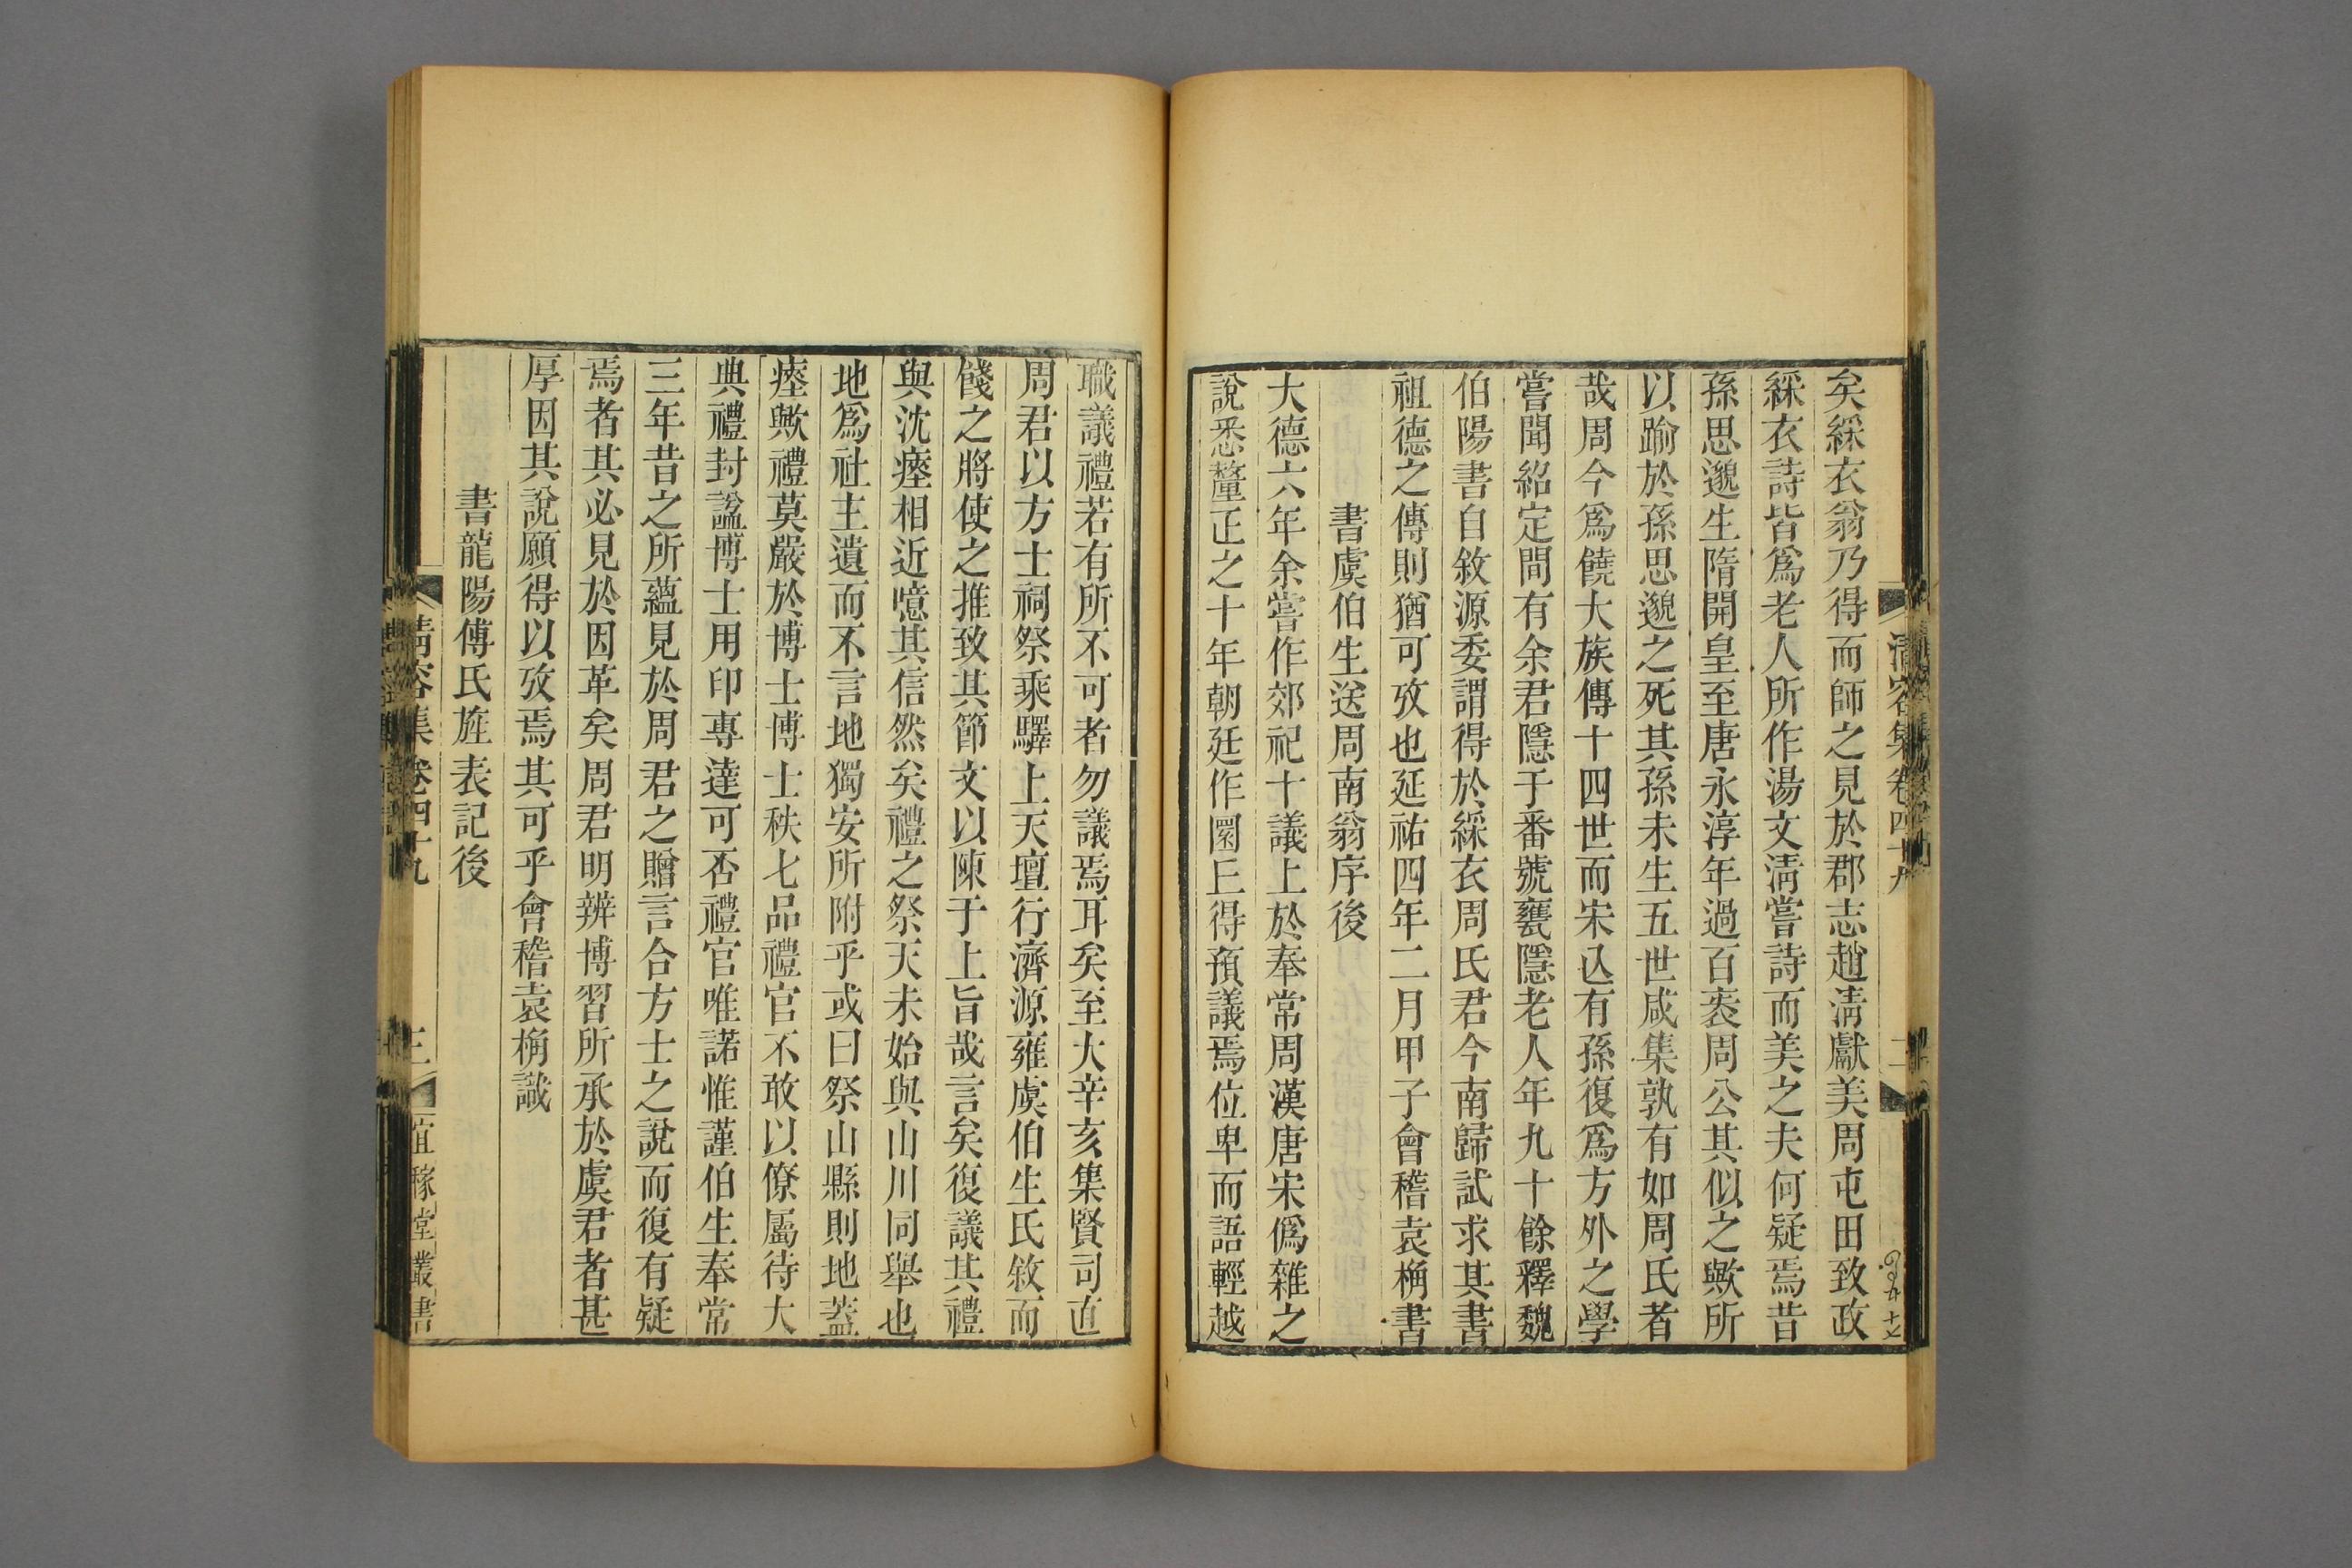 清容集卷四十九
二
矣綵衣翁乃得而師之見於郡志趙淸獻美周屯田致政
綵衣詩皆爲老人所作湯文淸嘗詩而美之夫何疑焉昔
孫思邈生隋開皇至唐永淳年過百袠周公其似之歟所
以踰於孫思邈之死其孫未生五世咸集孰有如周氏者
哉周今爲饒大族傳十四世而宋亾有孫復爲方外之學
嘗聞紹定間有余君隱于番號甕隱老人年九十餘釋魏
伯陽書自敘源委謂得於綵衣周氏君今南歸試求其書
祖德之傳則猶可攷也延祐四年二月甲子會稽袁桷書
書虞伯生送周南翁序後
大德六年余嘗作郊祀十議上於奉常周漢唐宋僞雜之
說悉釐正之十年朝廷作圜㐀得預議焉位卑而語輕越
職議禮若有所不可者勿議焉耳矣至大辛亥集賢司直
周君以方士祠祭乘驛上天壇行濟源雍虞伯生氏敘而
餞之將使之推致其節文以陳于上旨哉言矣復議其禮
與沈瘞相近噫其信然矣禮之祭天未始與山川同舉也
地爲社主遺而不言地獨安所附乎或曰祭山縣則地蓋
瘞歟禮莫嚴於博士博士秩七品禮官不敢以僚屬待大
典禮封諡博士用印專達可否禮官唯諾惟謹伯生奉常
三年昔之所蘊見於周君之贈言合方士之說而復有疑
焉者其必見於因革矣周君明辨博習所承於虞君者甚
厚因其說願得以攷焉其可乎會稽袁桷識
書龍陽傅氏旌表記後
清容集卷四十九
三
宜稼堂叢書